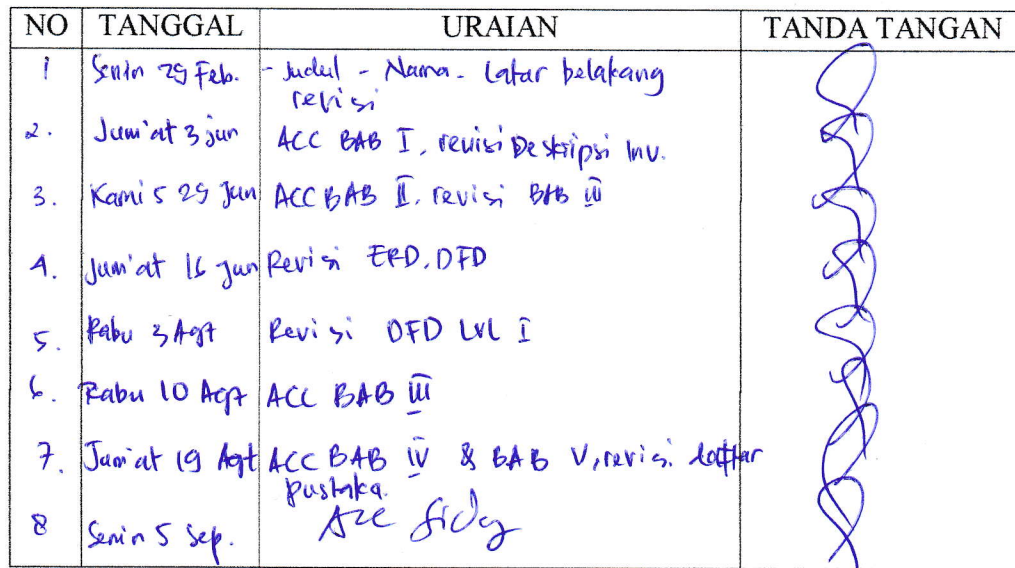 NO TANGGAL URAIAN TANDA TANGAN
1 Senin 29 Feb. - Judul - Nama - Latar belakang
revisi
2. Jum'at 3 jun ACC BAB I, revisi Deskripsi Inv.
3. Kamis 29 Jun ACC BAB II, revisi BAB III
4. Jum'at 16 jun Revisi ERD, DFD
5. Rabu 3 Agt Revisi DFD LVL I
6. Rabu 10 Agt ACC BAB III
7. Jum'at 19 Agt ACC BAB IV & BAB V, revisi daftar
pustaka.
8 Senin 5 Sep. Acc Sidang